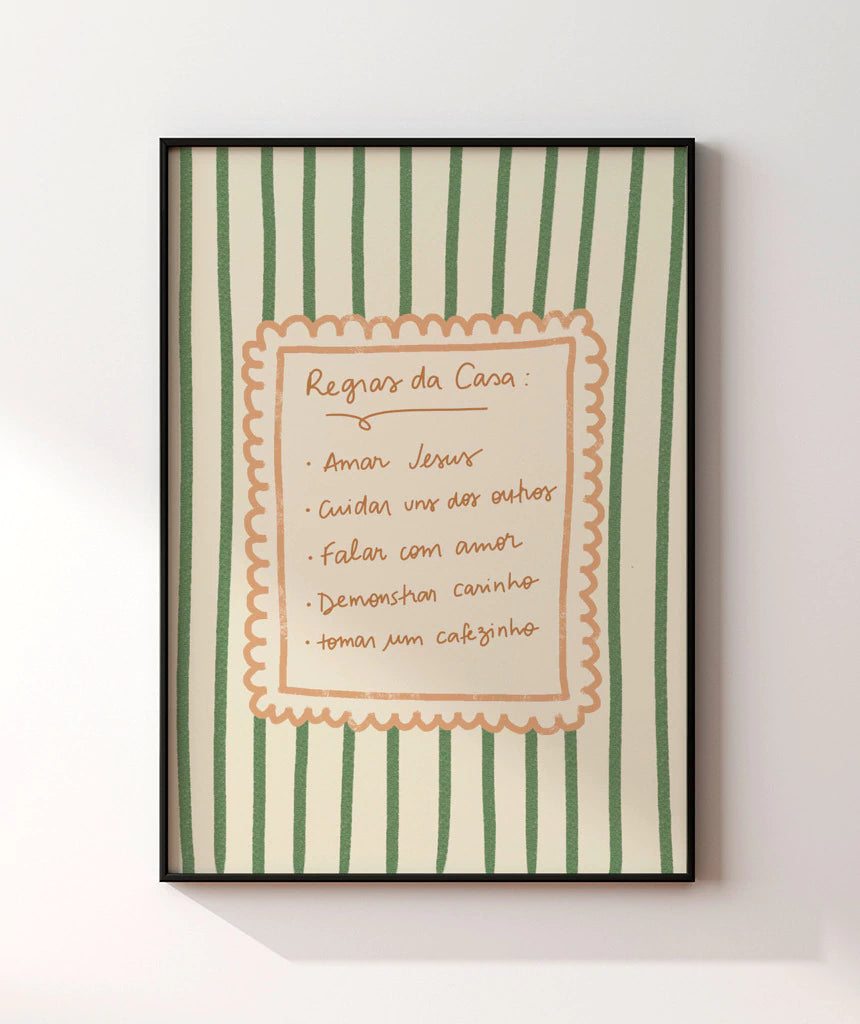 Regras da Casa:
· Amar Jesus
· Cuidar uns dos outros
· Falar com amor
· Demonstrar carinho
· tomar um cafezinho